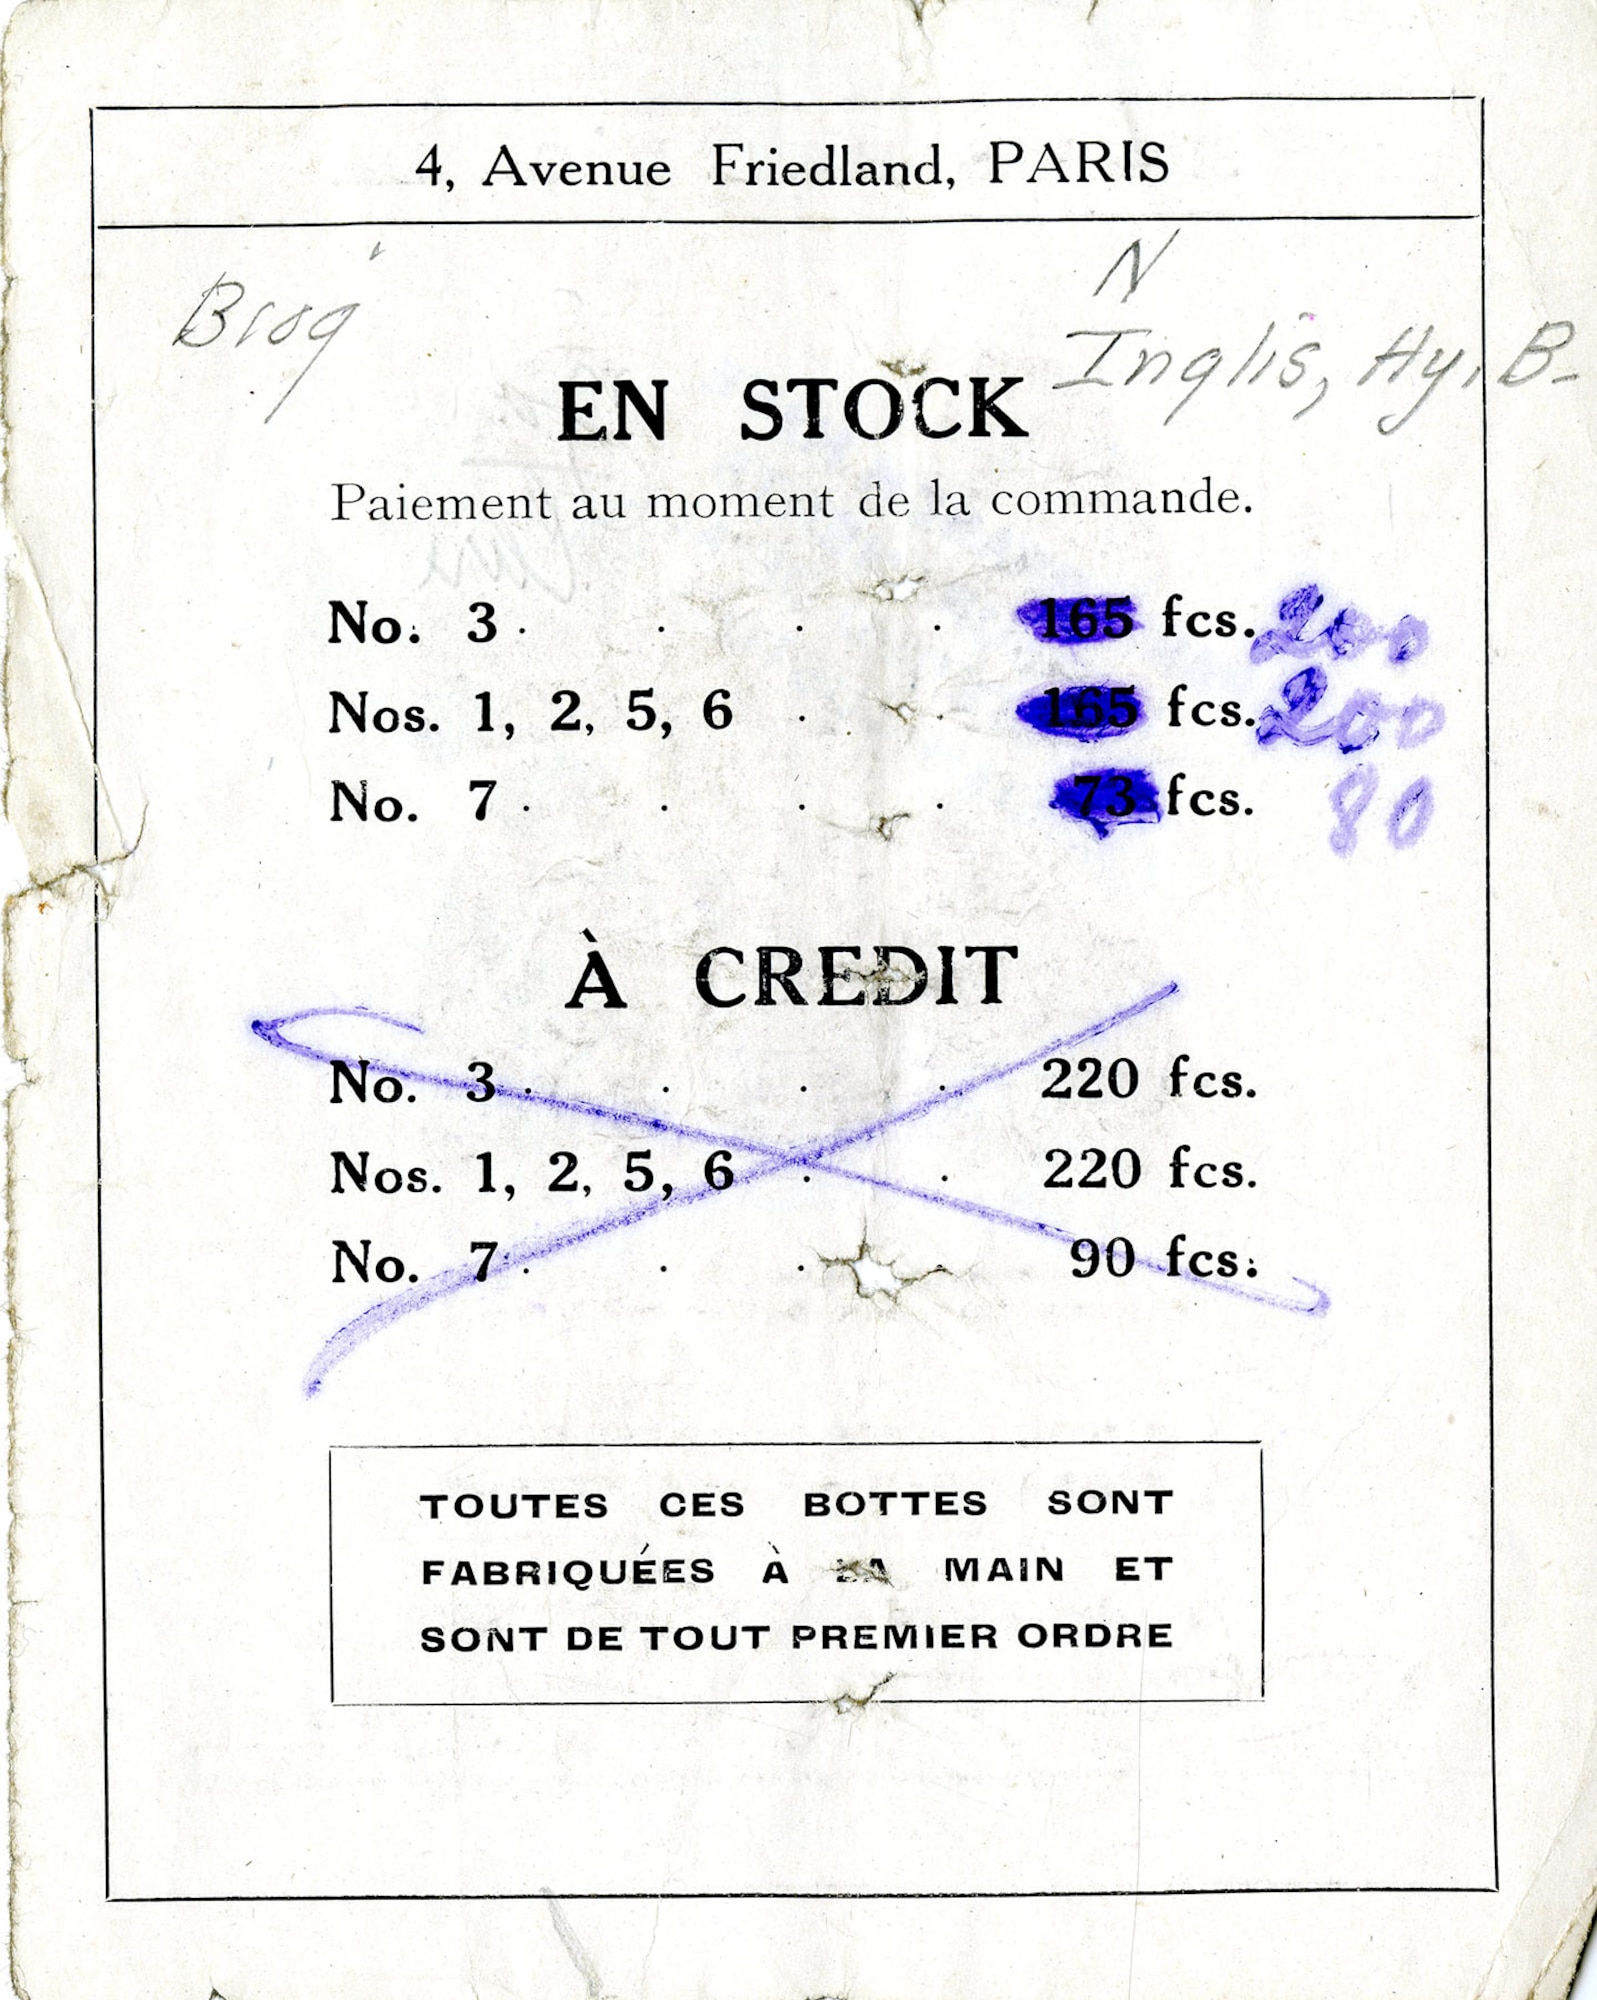 4, Avenue Friedland, PARIS
Biog
N
Inglis, Hy. B-
EN STOCK
Paiement au moment de la commande.
No. 3 . . . . 165 fcs. 200
Nos. 1, 2, 5, 6 . . 165 fcs. 200
No. 7 . . . . 73 fcs. 80
À CREDIT
No. 3 . . . . 220 fcs.
Nos. 1, 2, 5, 6 . . 220 fcs.
No. 7 . . . 90 fcs.
TOUTES CES BOTTES SONT
FABRIQUÉES À LA MAIN ET
SONT DE TOUT PREMIER ORDRE